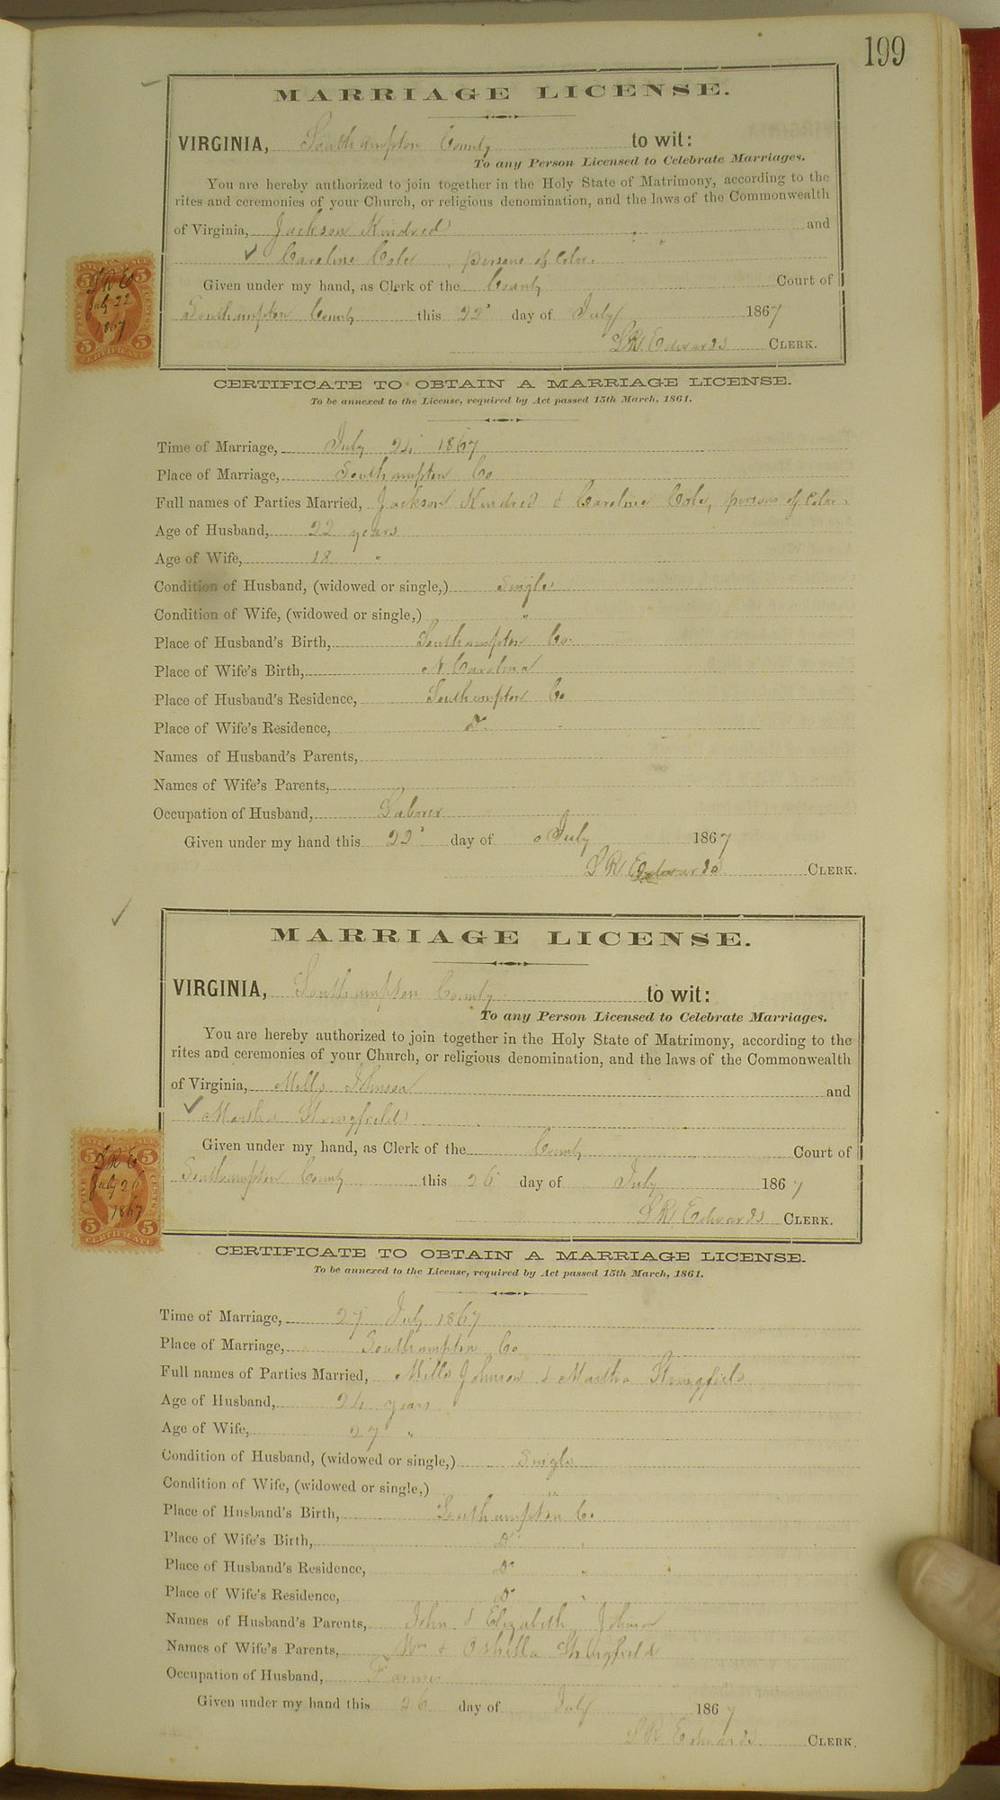 199
MARRIAGE LICENSE.
VIRGINIA, Southampton County to wit:
To any Person Licensed to Celebrate Marriages.
You are hereby authorized to join together in the Holy State of Matrimony, according to the
rites and ceremonies of your Church, or religious denomination, and the laws of the Commonwealth
of Virginia, Jackson Kindred and
✓ Caroline Cole, persons of Color.
Given under my hand, as Clerk of the County Court of
Southampton County this 22d day of July 1867
L R Edwards CLERK.
5 5
L R E
July 22
1867
5 CERTIFICATE 5
CERTIFICATE TO OBTAIN A MARRIAGE LICENSE.
To be annexed to the License, required by Act passed 15th March, 1861.
Time of Marriage, July 24 1867
Place of Marriage, Southampton Co
Full names of Parties Married, Jackson Kindred & Caroline Cole, persons of Color.
Age of Husband, 22 years
Age of Wife, 18 "
Condition of Husband, (widowed or single,) Single
Condition of Wife, (widowed or single,) "
Place of Husband's Birth, Southampton Co.
Place of Wife's Birth, N. Carolina
Place of Husband's Residence, Southampton Co
Place of Wife's Residence, Do
Names of Husband's Parents,
Names of Wife's Parents,
Occupation of Husband, Laborer
Given under my hand this 22d day of July 1867
L R Edwards CLERK.
MARRIAGE LICENSE.
VIRGINIA, Southampton County to wit:
To any Person Licensed to Celebrate Marriages.
You are hereby authorized to join together in the Holy State of Matrimony, according to the
rites and ceremonies of your Church, or religious denomination, and the laws of the Commonwealth
of Virginia, Mills Johnson and
✓ Martha Stringfield
Given under my hand, as Clerk of the County Court of
Southampton County this 26 day of July 1867
L R Edwards CLERK.
5 5
L R E
July 26
1867
5 CERTIFICATE 5
CERTIFICATE TO OBTAIN A MARRIAGE LICENSE.
To be annexed to the License, required by Act passed 15th March, 1861.
Time of Marriage, 27 July 1867
Place of Marriage, Southampton Co
Full names of Parties Married, Mills Johnson & Martha Stringfield
Age of Husband, 24 years
Age of Wife, 27 "
Condition of Husband, (widowed or single,) Single
Condition of Wife, (widowed or single,) "
Place of Husband's Birth, Southampton Co
Place of Wife's Birth, Do
Place of Husband's Residence, Do
Place of Wife's Residence, Do
Names of Husband's Parents, John & Elizabeth Johnson
Names of Wife's Parents, Wm & Stringfield
Occupation of Husband, Farmer
Given under my hand this 26 day of July 1867
L R Edwards CLERK.